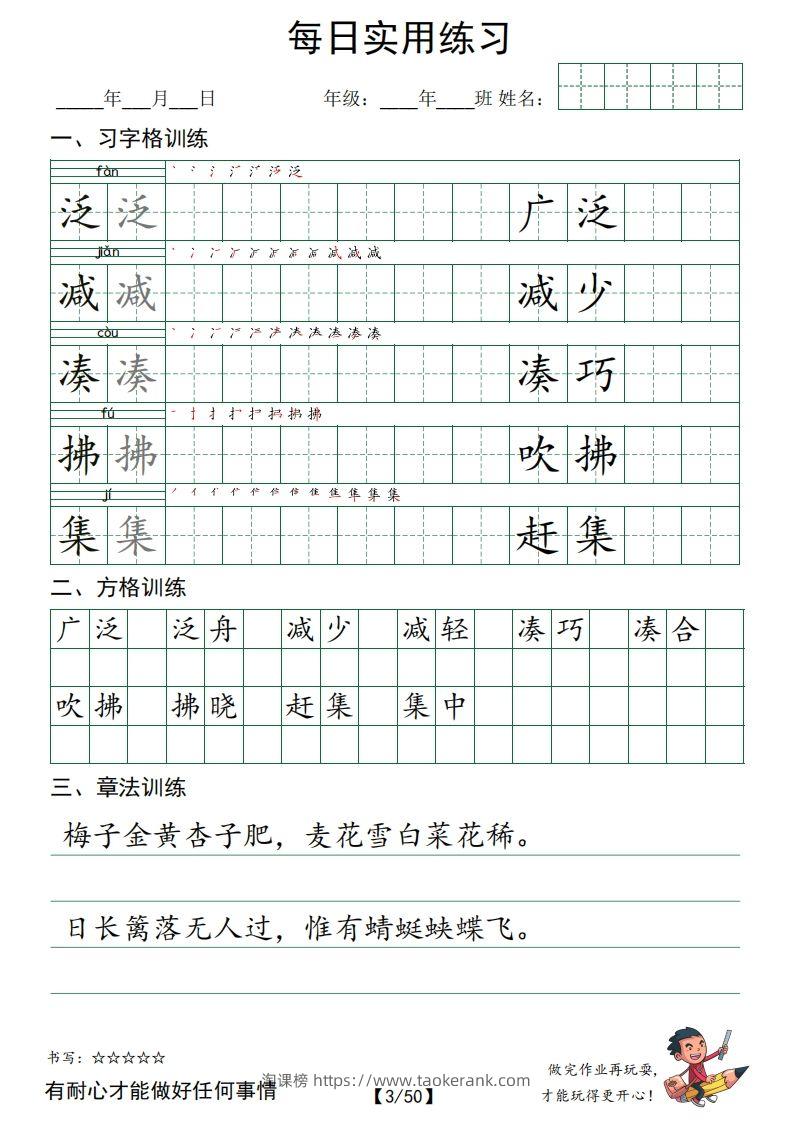 每日实用练习
_____年___月___日 年级：____年____班 姓名：
一、习字格训练
fàn
泛 泛 广 泛
jiǎn
减 减 减 少
còu
凑 凑 凑 巧
fú
拂 拂 吹 拂
jí
集 集 赶 集
二、方格训练
广 泛 泛 舟 减 少 减 轻 凑 巧 凑 合
吹 拂 拂 晓 赶 集 集 中
三、章法训练
梅子金黄杏子肥，麦花雪白菜花稀。
日长篱落无人过，惟有蜻蜓蛱蝶飞。
书写：☆☆☆☆☆
有耐心才能做好任何事情
淘课榜 https://www.taokerank.com
【3/50】
做完作业再玩耍，
才能玩得更开心！